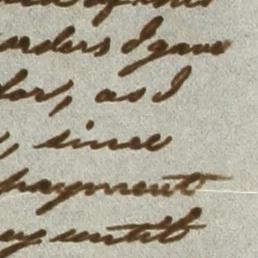 orders I gave
for, as I
, since
payment
until